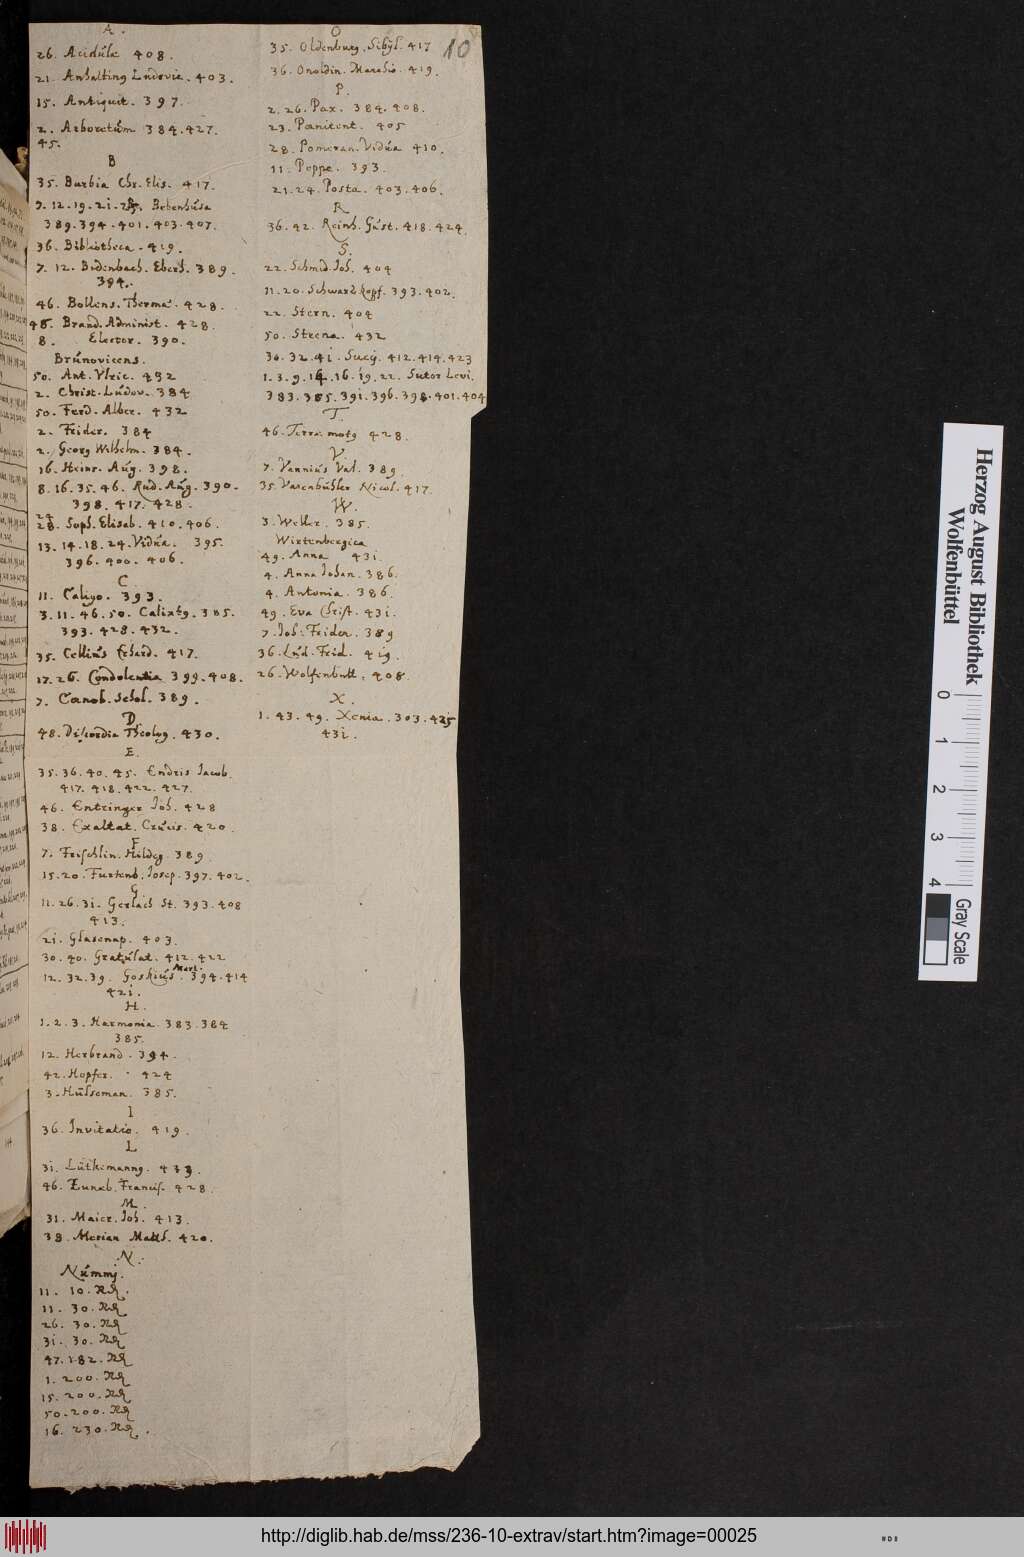 A.
26. Acidulæ 408.
21. Anhalting Ludovic. 403.
15. Antiquit. 397.
2. Arboretum 384. 427.
45.
B
35. Burbia Chr. Elis. 417.
7. 12. 19. 21. Bebenhusa
389. 394. 401. 403. 407.
36. Bibliotheca. 419.
7. 12. Bidenbach. Eberh. 389.
394.
46. Bollens. Thermæ. 428.
46. Brand. Administ. 428.
8. Elector. 390.
Brunovicens.
50. Ant. Ulric. 432
2. Christ. Ludov. 384
50. Ferd. Alber. 432
2. Frider. 384
2. Georg Wilhelm. 384.
16. Heinr. Aug. 398.
8. 16. 35. 46. Rud. Aug. 390.
398. 417. 428.
24
28. Soph. Elisab. 410. 406.
13. 14. 18. 24. Vidua. 395.
396. 400. 406.
C
11. Caligo. 393.
3. 11. 46. 50. Calixtg. 385.
393. 428. 432.
35. Cellius Erhard. 417.
17. 26. Condolentia 399. 408.
7. Cœnob. Schol. 389.
D
48. Discordia Theolog. 430.
E.
35. 36. 40. 45. Endris Jacob.
417. 418. 422. 427.
46. Entringer Joh. 428
38. Exaltat. Crucis. 420.
F
7. Frischlin. Hildeg. 389.
15. 20. Furtenb. Josep. 397. 402.
G
11. 26. 31. Gerlach St. 393. 408
413.
21. Glasenap. 403.
30. 40. Gratulat. 412. 422
12. 32. 39. Goskius Mart. 394. 414
421.
H.
1. 2. 3. Harmonia. 383. 384
385.
12. Herbrand. 394.
42. Hopfer. 424
3. Hulseman. 385.
I
36. Invitatio. 419.
L
31. Lutkemanng. 433.
46. Francis. 428.
M.
31. Maier. Joh. 413.
38. Merian Matth. 420.
N.
Nummj.
11. 10.
11. 30.
26. 30.
31. 30.
47. 182.
1. 200.
15. 200.
50. 200.
16. 230.
O
10
35. Oldenburg. Sibyl. 417
36. Onoldin. Marchio. 419.
P.
2. 26. Pax. 384. 408.
23. Pœnitent. 405
28. Pomeran. Vidua 410.
11. Poppe. 393.
21. 24. Posta. 403. 406.
R
36. 42. Reinh. Gust. 418. 424.
S.
22. Schmid. Joh. 404
11. 20. Schwarzkopf. 393. 402.
22. Stern. 404
50. Strena. 432
30. 32. 41. Suecj. 412. 414. 423
1. 3. 9. 14. 16. 19. 22. Sutor Levi.
383. 385. 391. 396. 398. 401. 404
T
46. Terræ motg 428.
V.
7. Vannius Val. 389.
35. Varenbühler Nicol. 417.
W.
3. Weller. 385.
Wirtenbergica
49. Anna 431.
4. Anna Johan. 386.
4. Antonia. 386.
49. Eva Christ. 431.
7. Joh: Frider. 389
36. Lud. Frid. 419.
26. Wolfenbutt. 408.
X.
1. 43. 49. Xenia. 303. 425
431.
Herzog August Bibliothek
Wolfenbüttel
0 1 2 3 4
Gray Scale
http://diglib.hab.de/mss/236-10-extrav/start.htm?image=00025